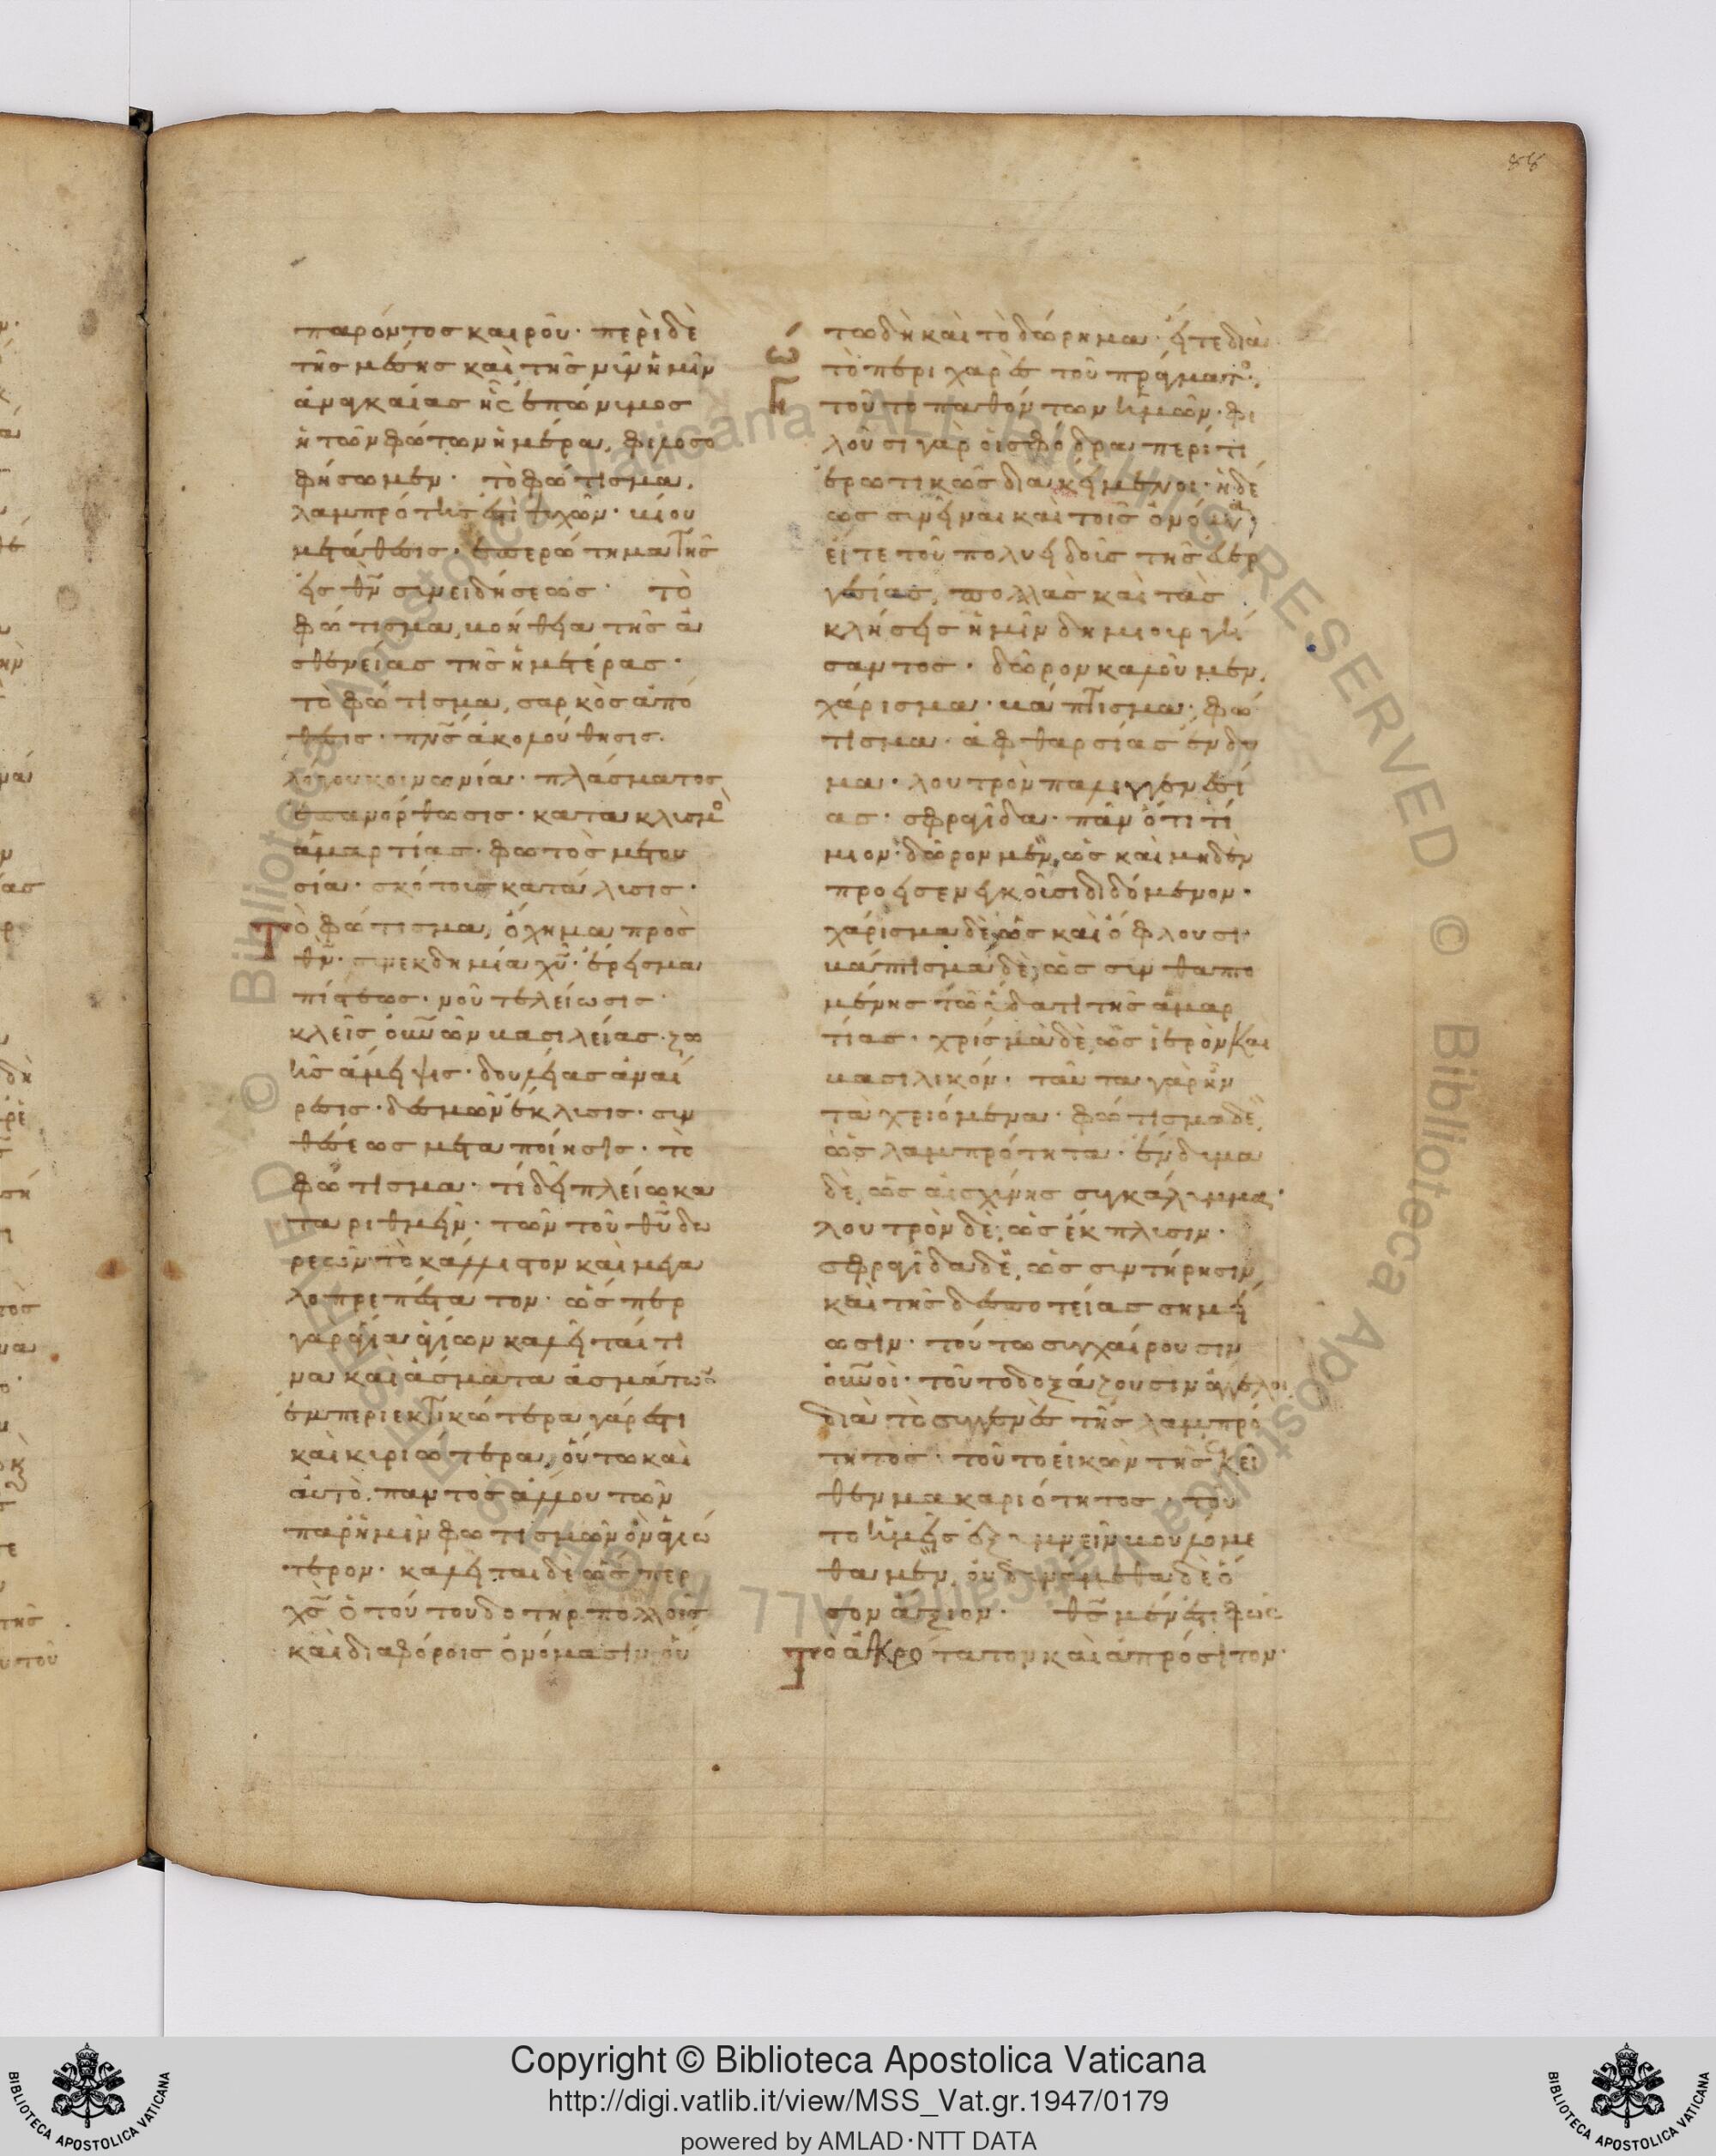 88
παρόντος καιροῦ· περὶ δὲ
τῆς μέσης καὶ τῆς νῦν ἡμῖν
ἀναγκαίας ἧς ἐπώνυμος
ἡ τῶν φώτων ἡμέρα, φιλοσο
φήσωμεν· τὸ φώτισμα,
λαμπρότης ἐστὶ ψυχῶν· βίου
μετάθεσις· ἐπερώτημα τῆς
εἰς θν συνειδήσεως· τὸ
φώτισμα, βοήθεια τῆς ἀ
σθενείας τῆς ἡμετέρας·
τὸ φώτισμα, σαρκὸς ἀπό
θεσις· πνς ἀκολούθησις·
λόγου κοινωνία· πλάσματος
ἐπανόρθωσις· κατακλυσμὸ
ἁμαρτίας· φωτὸς μετου
σία· σκότους κατάλυσις·
Τὸ φώτισμα, ὄχημα πρὸς
θν· συνεκδημία χυ· ἔρεισμα
πίστεως· νοῦ τελείωσις·
κλεῖς οὐνῶν βασιλείας· ζω
ῆς ἄμειψις· δουλείας ἀναί
ρεσις· δεσμῶν ἔκλυσις· συν
θέσεως μεταποίησις· τὸ
φώτισμα· τί δεῖ πλείω κα
ταριθμεῖν· τῶν τοῦ θυ δω
ρεῶν τὸ κάλλιστον καὶ μεγα
λοπρεπέστατον· ὥσπερ
γὰρ ἅγια ἁγίων καλεῖταί τι
να καὶ ἄσματα ἀσμάτων
ἐμπεριεκτικώτερα γάρ ἐστι
καὶ κυριώτερα, οὕτω καὶ
αὐτὸ παντὸς ἄλλου τῶν
παρ' ἡμῖν φωτισμῶν ὂν ἁγιώ
τερον· καλεῖται δὲ ὥσπερ
χς ὁ τούτου δοτὴρ πολλοῖς
καὶ διαφόροις ὀνόμασιν, οὕ
τω δὴ καὶ τὸ δώρημα· εἴτε διὰ
τὸ περιχαρὲς τοῦ πράγματο,
τοῦτο παθόντων ἡμῶν· φι
λοῦσι γὰρ οἱ σφόδρα περί τι
ἐρωτικῶς διακείμενοι· ἡδέ
ως συνεῖναι καὶ τοῖς ὀνόμα,
εἴτε τοῦ πολυειδοῦς τῆς εὐερ
γεσίας, πολλὰς καὶ τὰς
κλήσεις ἡμῖν δημιουργή
σαντος· δῶρον καλοῦμεν,
χάρισμα· βάπτισμα· φώ
τισμα· ἀφθαρσίας ἔνδυ
μα· λουτρὸν παλιγγενεσί
ας· σφραγῖδα· πᾶν ὅτι τί
μιον· δῶρον μὲν, ὡς καὶ μηδὲν
προεισενεγκοῦσι διδόμενον·
χάρισμα δὲ, ὡς καὶ ὀφλουσι·
βάπτισμα δὲ, ὡς συνθαπτο
μένης τῶ ὕδατι τῆς ἁμαρ
τίας· χρίσμα δὲ, ὡς ἱερὸν καὶ
βασιλικόν· ταῦτα γὰρ ἦν
τὰ χριόμενα· φώτισμα δὲ,
ὡς λαμπρότητα· ἔνδυμα
δὲ, ὡς αἰσχύνης συγκάλυμμα·
λουτρὸν δὲ, ὡς ἔκπλυσιν·
σφραγῖδα δὲ, ὡς συντήρησιν,
καὶ τῆς δεσποτείας σημεί
ωσιν· τούτω συγχαίρουσιν
οὐνοὶ· τοῦτο δοξάζουσιν ἄγγελοι
διὰ τὸ συγγενὲς τῆς λαμπρό
τητος· τοῦτο εἰκὼν τῆς ἐκεῖ
θεν μακαριότητος· τοῦ
το ἡμεῖς ἐξυμνεῖν βουλόμε
θα μὲν, οὐ δυνάμεθα δὲ ὅ
σον ἄξιον· θς μέν ἐστι φῶς
τὸ ἀκρότατον καὶ ἀπρόσιτον·
Copyright © Biblioteca Apostolica Vaticana
http://digi.vatlib.it/view/MSS_Vat.gr.1947/0179
powered by AMLAD·NTT DATA